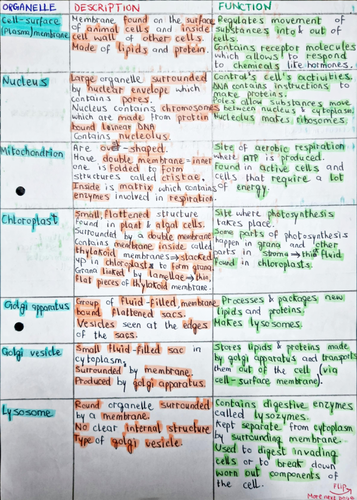 ORGANELLE DESCRIPTION FUNCTION
Cell-surface
(Plasma) membrane
Membrane found on the surface
of animal cells and inside
cell wall of other cells.
Made of lipids and protein.
Regulates movement of
substances into & out of
cells.
Contains receptor molecules
which allows to respond
to chemicals like hormones.
Nucleus
Large organelle surrounded
by nuclear envelope which
contains pores.
Nucleus contains chromosomes
which are made from protein
bound linear DNA
Contains nucleolus.
Control's cell's activities.
DNA contains instructions to
make proteins.
Pores allow substances to move
between nucleus & cytoplasm
Nucleolus makes ribosomes.
Mitochondrion
Are oval-shaped.
Have double membrane-inner
one is folded to form
structures called cristae.
Inside is matrix which contains
enzymes involved in respiration.
Site of aerobic respiration
where ATP is produced.
Found in active cells and
cells that require a lot
of energy.
Chloroplast
Small, flattened structure
found in plant & algal cells.
Surrounded by a double membrane
Contains membrane inside called
thylakoid membranes → stacked
up in chloroplasts to form grana
Grana linked by lamellae → thin,
flat pieces of thylakoid membrane.
Site where photosynthesis
takes place.
Some parts of photosynthesis
happen in grana and other
parts in stroma → thick fluid
found in chloroplasts.
Golgi apparatus
Group of fluid-filled, membrane
bound flattened sacs.
Vesicles seen at the edges
of the sacs.
Processes & packages new
lipids and proteins.
Makes lysosomes.
Golgi vesicle
Small fluid-filled sac in
cytoplasm,
Surrounded by membrane.
Produced by golgi apparatus.
Stores lipids & proteins made
by golgi apparatus and transports
them out of the cell (via
cell-surface membrane).
Lysosome
Round organelle surrounded
by a membrane.
No clear internal structure
Type of golgi vesicle.
Contains digestive enzymes
called lysozymes.
Kept separate from cytoplasm
by surrounding membrane.
Used to digest invading
cells or to break down
worn out components
of the cell.
FLIP
More next page